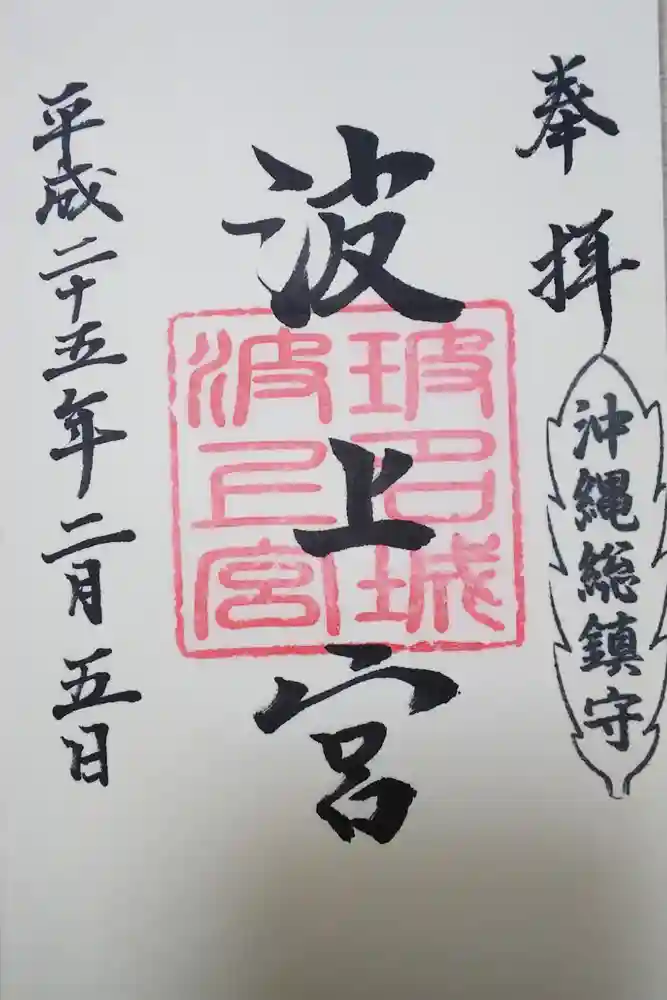 奉拝
沖縄総鎮守
波上宮
玻名城
波上宮
平成二十五年二月五日